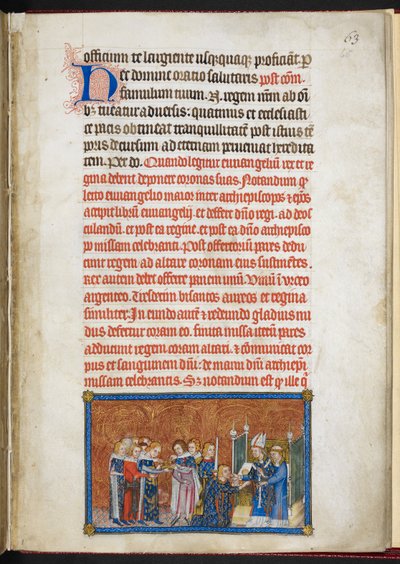 63
officium te largiente usq̃quaq̃ proficiat̃. P
Hec domine oratio salutaris post cõm̃.
famulum tuum. N. regem nr̃m ab õi
b; tueatur aduersis: quatinus et ecclesiasti
ce pacis obtineat tranquillitatẽ post istius tẽ
poris decursum ad eternam perueniat heredita
tem. Per dñ. Quando legitur euuangeliũ rex et re
gina debent deponere coronas suas. Notandum q̃
lecto euuangelio maior inter archiepiscopos & ep̃os
accipit librũ euuangelij. et deffert dño regi. ad deos
culandũ. et post ea regine. et post ea dño archiepisco
po missam celebranti. Post offertoriũ pares dedu
cunt regem ad altare coronam eius sustinẽtes.
Rex autem debet offerre panem unũ. Vinũ ĩ vrceo
argenteo. Tresdecim bisantos aureos et regina
similiter. In eundo autẽ & redeundo gladius nu
dus defertur coram eo. finita missa iterũ pares
adducunt regem coram altari. & cõmunicat cor
pus et sanguinem dñi: de manu dñi archiep̃i
missam celebrantis. S; notandum est q̃ ille q̃